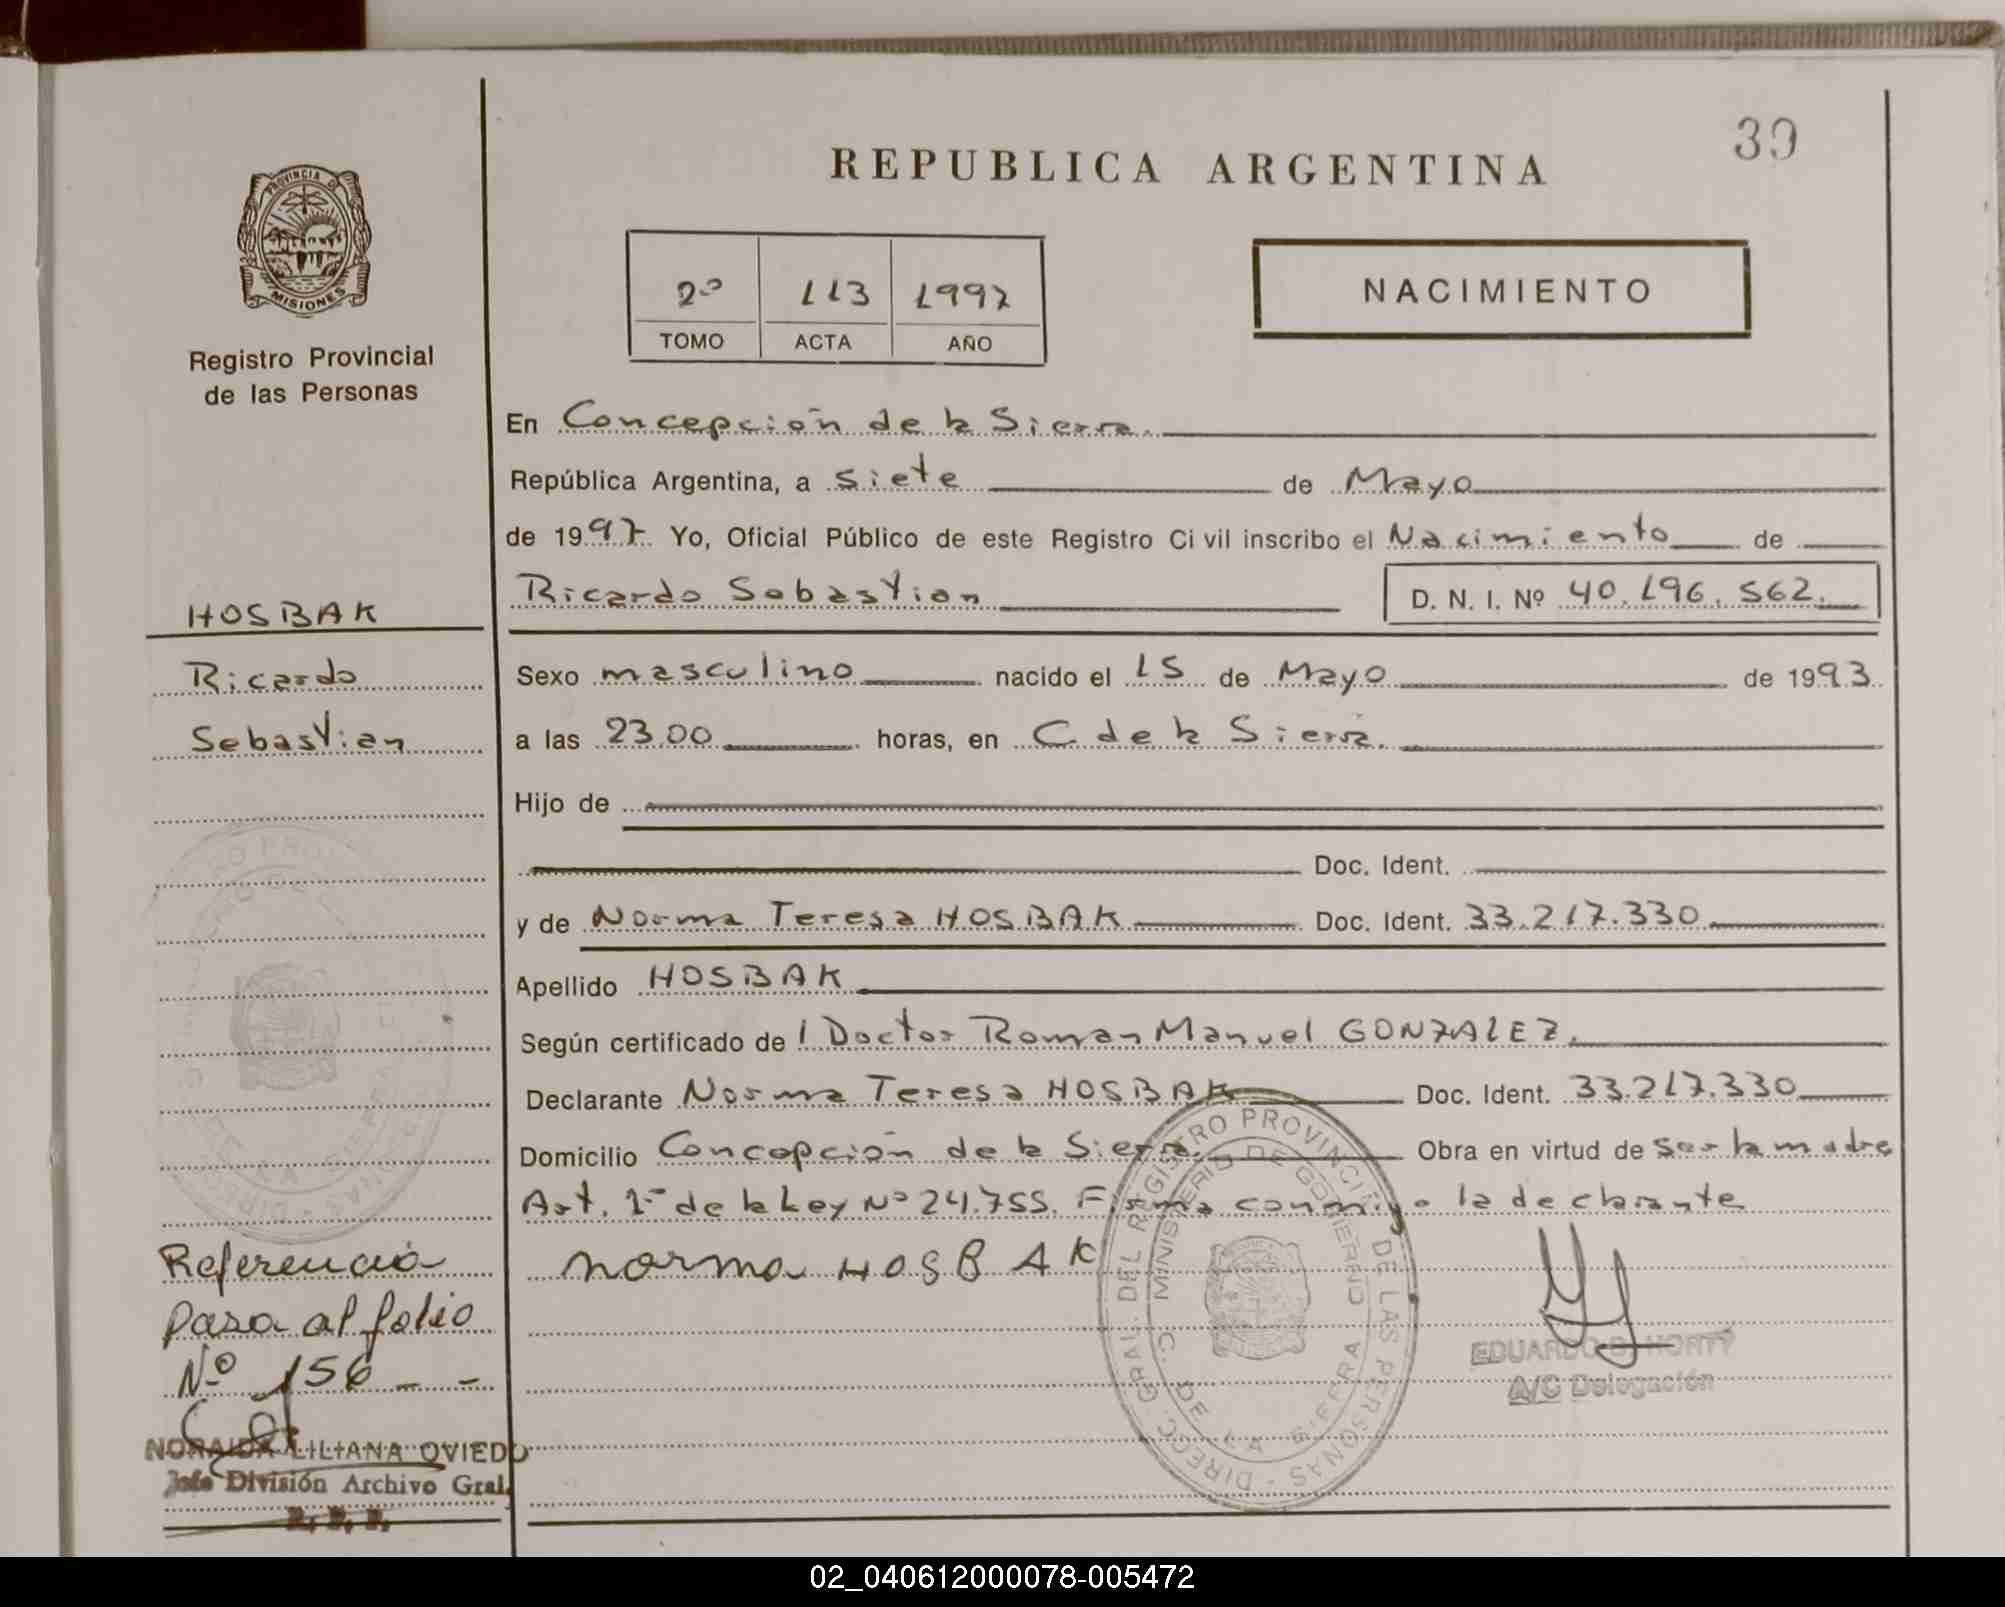 39
REPUBLICA ARGENTINA
PROVINCIA DE
MISIONES
Registro Provincial
de las Personas
2º 113 1997
TOMO ACTA AÑO
NACIMIENTO
En Concepción de la Sierra.
República Argentina, a siete de Mayo
de 1997. Yo, Oficial Público de este Registro Civil inscribo el Nacimiento de
Ricardo Sebastian D. N. I. Nº 40.196.562.
HOSBAK
Ricardo
Sebastian
Sexo masculino nacido el 15 de Mayo de 1993.
a las 23.00 horas, en C. de la Sierra.
Hijo de
Doc. Ident.
y de Norma Teresa HOSBAK Doc. Ident. 33.217.330
Apellido HOSBAK
Según certificado de l Doctor Roman Manuel GONZALEZ.
Declarante Norma Teresa HOSBAK Doc. Ident. 33.217.330
Domicilio Concepción de la Sierra. Obra en virtud de ser la madre
Art. 1º de la Ley Nº 24.755. Firma conmigo la declarante
norma HOSBAK
DIRECC. GRAL. DEL REGISTRO PROVINCIAL DE LAS PERSONAS
MINISTERIO DE GOBIERNO
C. DE LA SIERRA
EDUARDO
A/C Delegación
Referencia
Pasa al folio
Nº 156 - -
NORAIDA LILIANA OVIEDO
Jefe División Archivo Gral.
R. P. P.
02_040612000078-005472